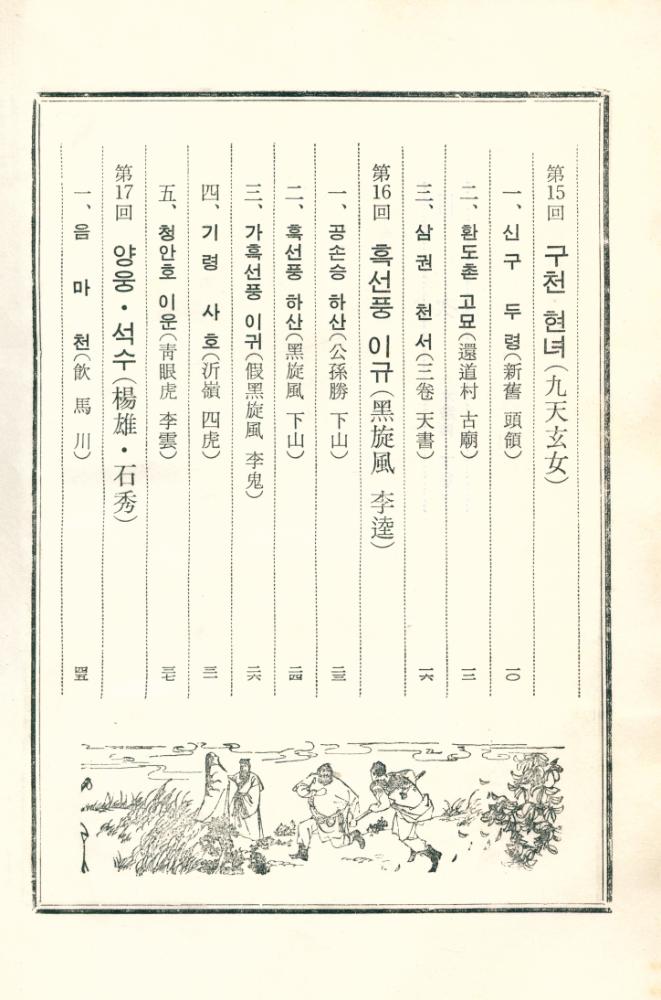 第15回 구천 현녀(九天玄女)
一、신구 두령(新舊 頭領) 一〇
二、환도촌 고묘(還道村 古廟) 一二
三、삼권 천서(三卷 天書) 一六
第16回 흑선풍 이규(黑旋風 李逵)
一、공손승 하산(公孫勝 下山) 二三
二、흑선풍 하산(黑旋風 下山) 二四
三、가흑선풍 이귀(假黑旋風 李鬼) 二六
四、기령 사호(沂嶺 四虎) 三一
五、청안호 이운(靑眼虎 李雲) 三七
第17回 양웅・석수(楊雄・石秀)
一、음마천(飮馬川) 四五